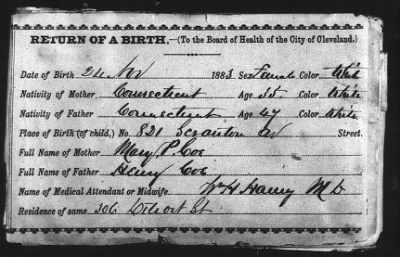 RETURN OF A BIRTH.—(To the Board of Health of the City of Cleveland.)
Date of Birth 24 Nov 1883. Sex Female Color White
Nativity of Mother Connecticut Age 35. Color White
Nativity of Father Connecticut Age 47 Color White
Place of Birth (of child.) No. 821 Scranton Av Street.
Full Name of Mother Mary P. Coe
Full Name of Father Henry Coe
Name of Medical Attendant or Midwife Wm H Haney M D
Residence of same 306 Detroit St